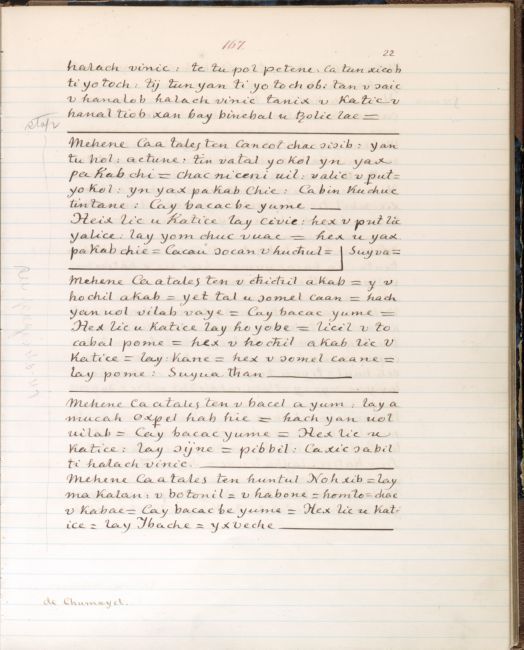 167.
22
halach vinic: te tu pol petene. Ca tun xicob
ti yotoch: tij tun yan ti yotochobi: tan v ɔaic
v hanalob halach vinic tanix v Katic v
hanal tiob xan bay binebal u tzolic lae =
stop
Mehene Caa tales ten Cancot chac ɔiɔib: yan
tu hol: actune: tin vatal yokol yn yax
pakab chi = chac niceni uil: valic v put=
yokol: yn yax pakab Chie: Cabin Kuchuc
tin tane: Cay bacac be yume
Heix lic u Katice lay civie: hex v put lic
yalice: lay yom chuc vuae = hex u yax
pakab chie = Cacau ɔocan v huchul = Suyva=
Mehene Caatales ten v chichil akab = y v
hochil akab = yet tal u ɔomel caan = hach
yan uol uilab vaye = Cay bacac yume =
Hex lic u Katice lay hoyobe = licil v to
cabal pome = hex v hochil akab lic v
Katice = lay Kane = hex v ɔomel caane =
lay pome: Suyua than
Mehene Caatales ten v bacel a yum: lay a
mucah oxpel hab hie = hach yan uol
uilab = Cay bacac yume = Hex lic u
Katice: lay ɔijne = pibbil: Ca xic ɔabil
ti halach vinic.
Mehene Caa tales ten huntul Nohxib = lay
ma Kalan: v botonil = v habone = homto= chac
v Kabae = Cay bacac be yume = Hex lic u Kat-
ice = lay Ybache = yxveche
de Chumayel.